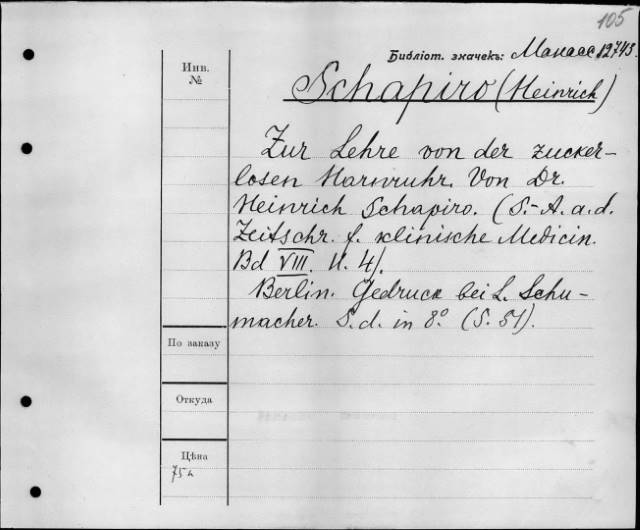 105
Библіот. значекъ: Манасс 12743
Инв.
№
Schapiro (Heinrich)
Zur Lehre von der zucker-
losen Harnruhr. Von Dr.
Heinrich Schapiro. (S.-A. a. d.
Zeitschr. f. klinische Medicin.
Bd VIII. H. 4).
Berlin. Gedruck bei L. Schu-
macher. S. d. in 8.° (S. 51).
По заказу
Откуда
Цѣна